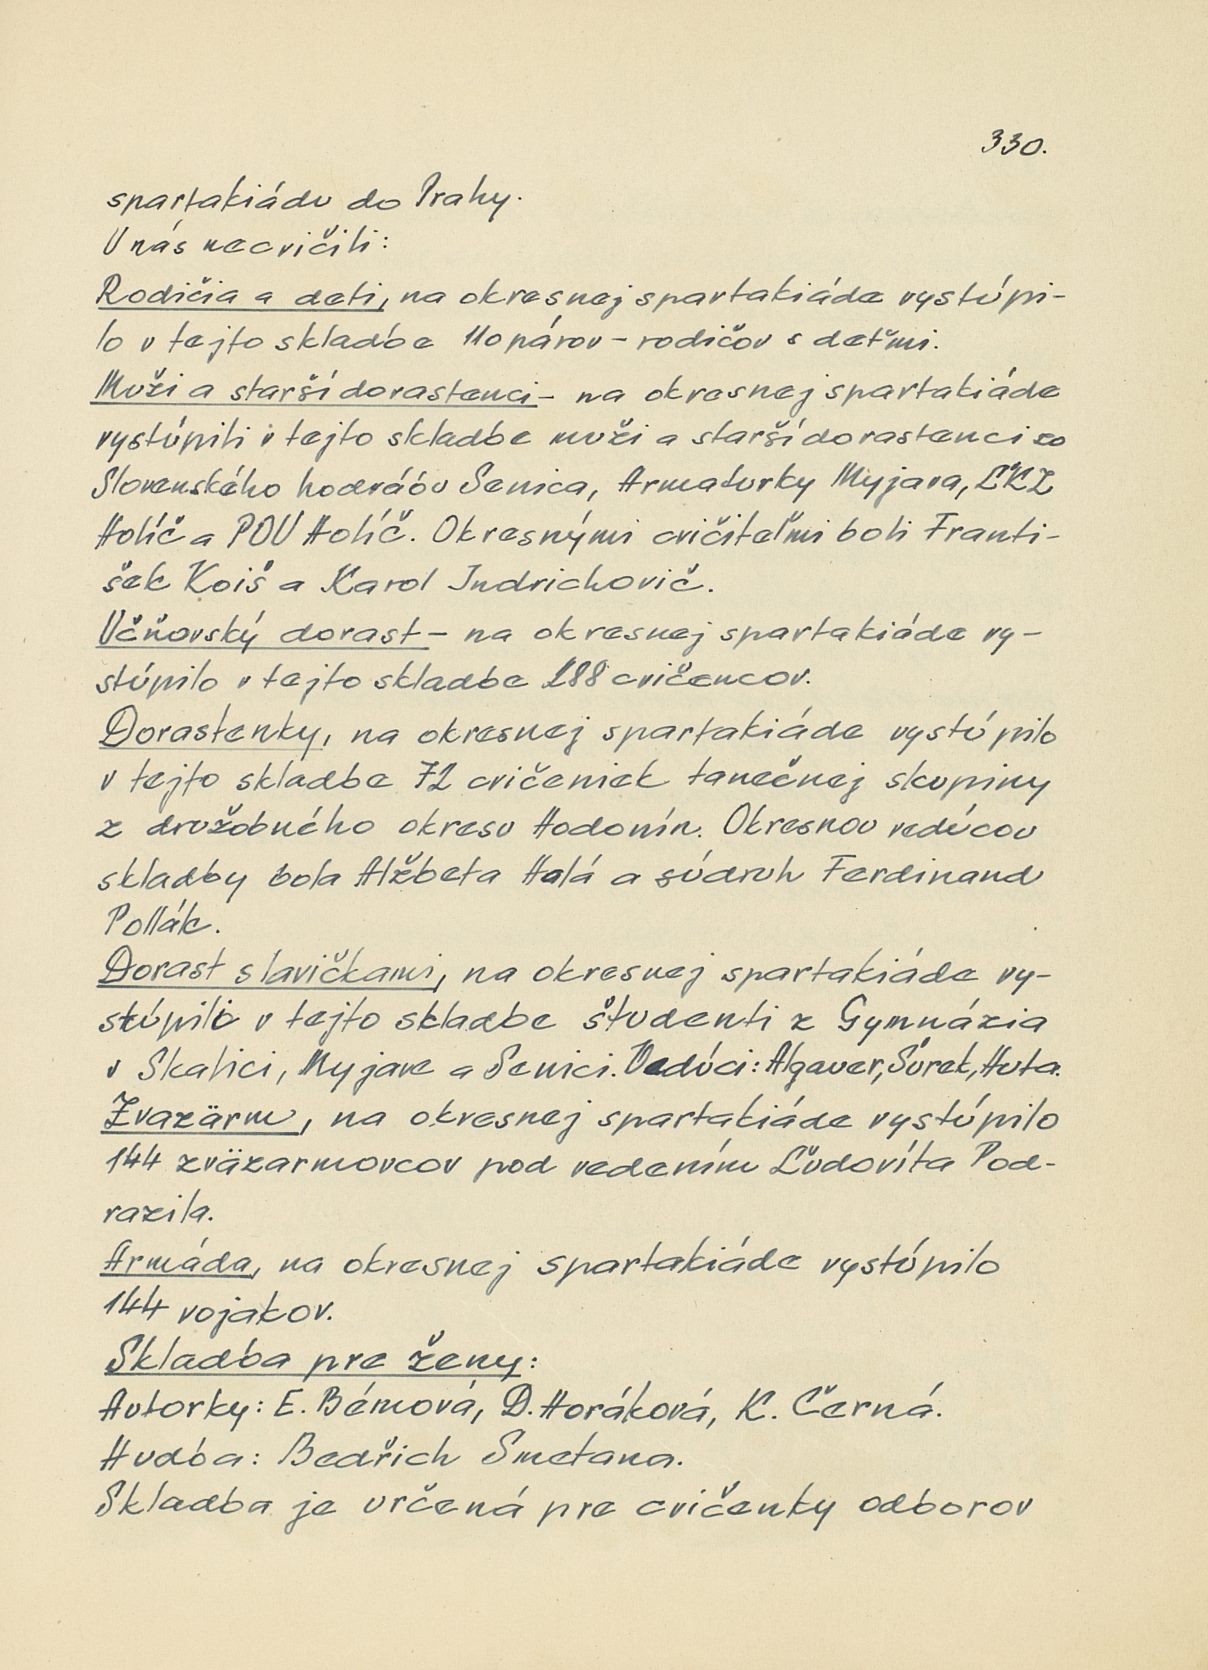 330.
spartakiádu do Prahy.
U nás necvičili:
Rodičia a deti, na okresnej spartakiáde vystúpi-
lo v tejto skladbe 110 párov - rodičov s deťmi.
Muži a starší dorastenci - na okresnej spartakiáde
vystúpili v tejto skladbe muži a starší dorastenci zo
Slovenského hodvábu Senica, Armaturky Myjava, ĽKZ
Holíč a POU Holíč. Okresnými cvičiteľmi boli Franti-
šek Koiš a Karol Indrichovič.
Učňovský dorast - na okresnej spartakiáde vy-
stúpilo v tejto skladbe 288 cvičencov.
Dorastenky, na okresnej spartakiáde vystúpilo
v tejto skladbe 72 cvičeniek tanečnej skupiny
z družobného okresu Hodonín. Okresnou vedúcou
skladby bola Alžbeta Halá a súdruh Ferdinand
Pollák.
Dorast s lavičkami, na okresnej spartakiáde vy-
stúpili v tejto skladbe študenti z Gymnázia
v Skalici, Myjave a Senici. Vedúci: Algauer, Šúrek, Huta.
Zvazärm, na okresnej spartakiáde vystúpilo
144 zväzarmovcov pod vedením Ľudovíta Pod-
razila.
Armáda, na okresnej spartakiáde vystúpilo
144 vojakov.
Skladba pre ženy:
Autorky: E. Bémová, D. Horáková, K. Černá.
Hudba: Bedřich Smetana.
Skladba je určená pre cvičenky odborov